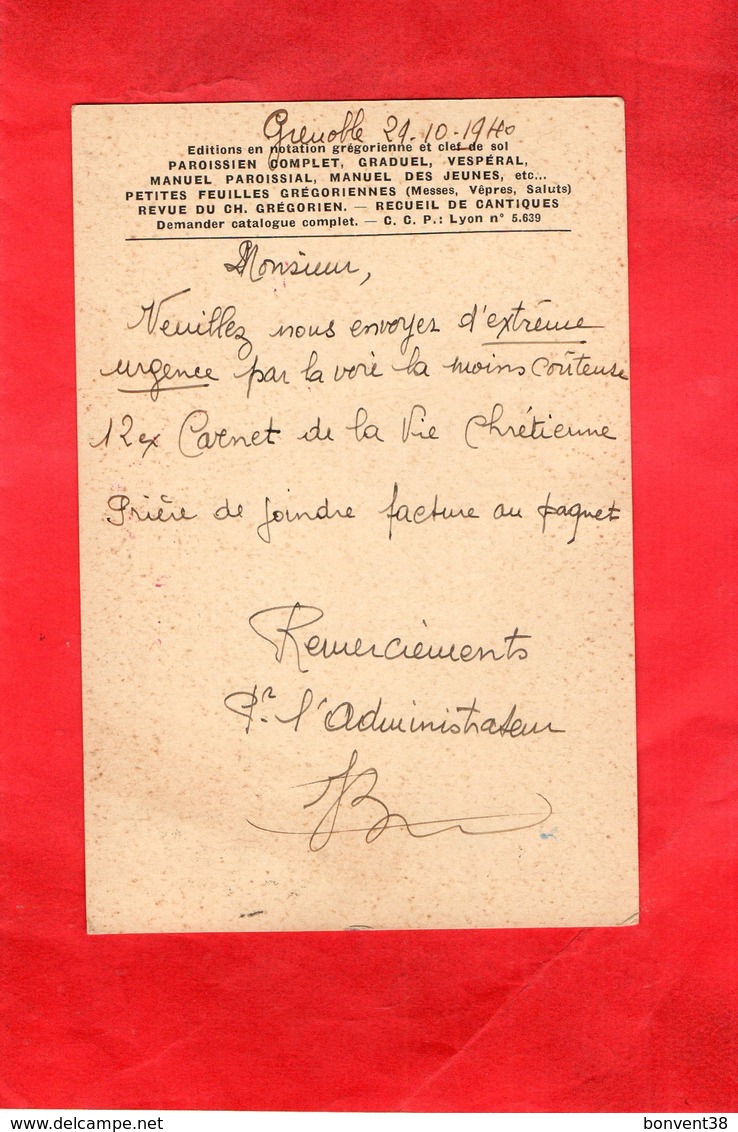 Grenoble 29-10-1940
Editions en notation grégorienne et clef de sol
PAROISSIEN COMPLET, GRADUEL, VESPÉRAL,
MANUEL PAROISSIAL, MANUEL DES JEUNES, etc...
PETITES FEUILLES GRÉGORIENNES (Messes, Vêpres, Saluts)
REVUE DU CH. GRÉGORIEN. — RECUEIL DE CANTIQUES
Demander catalogue complet. — C. C. P.: Lyon n° 5.639
Monsieur,
Veuillez nous envoyer d'extrême
urgence par la voie la moins coûteuse
12 ex Carnet de la Vie Chrétienne
Prière de joindre facture au paquet
Remerciements
Pr. l'Administrateur
delcampe.net
bonvent38